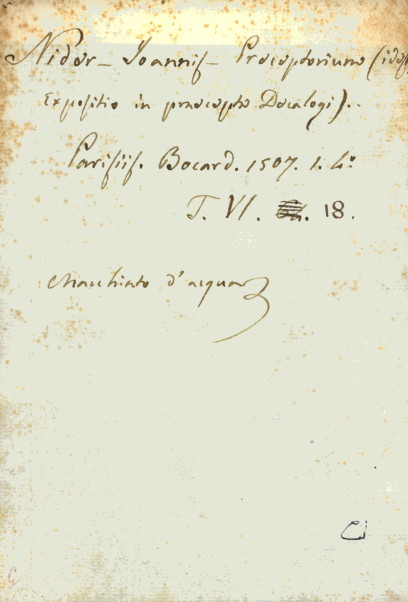 Nider - Joannis - Preceptorium (idest
Expositio in praecepta Decalogi)..
Parisiis. Bocard. 1507. 1. 4°
T. VI. 18.
Macchiato d'acqua